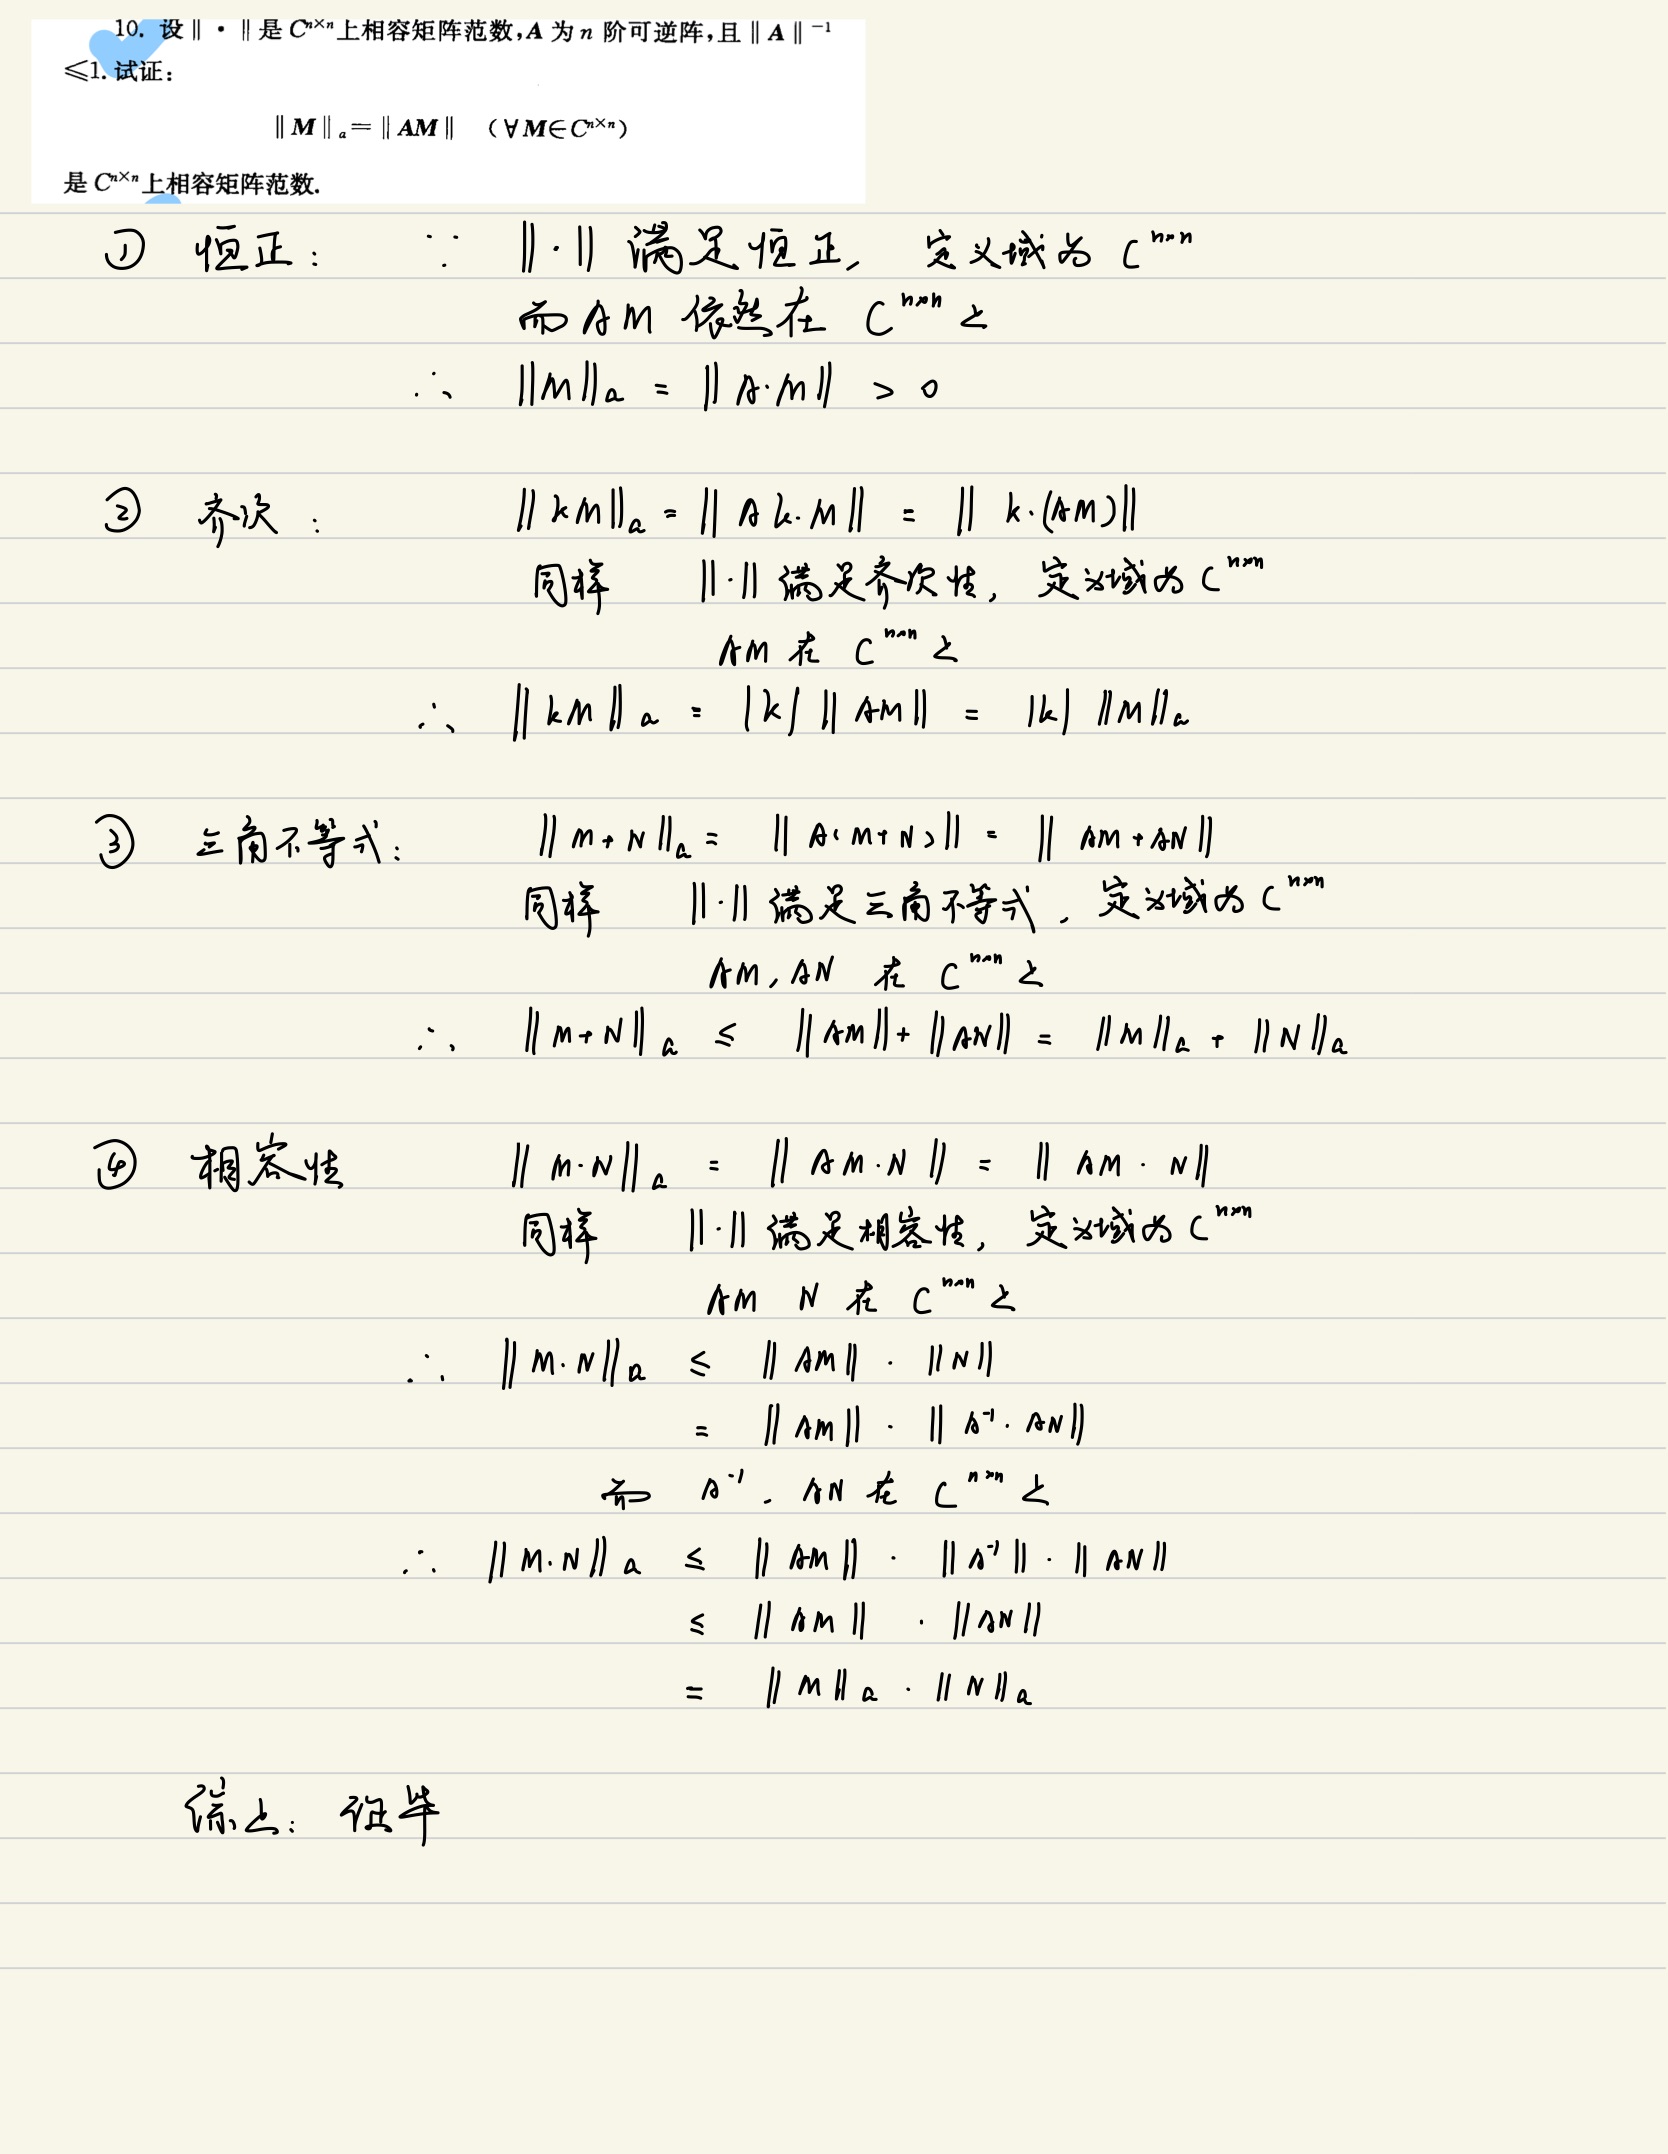 10. 设 ‖ · ‖ 是 Cⁿˣⁿ 上相容矩阵范数, A 为 n 阶可逆阵, 且 ‖ A ‖ ⁻¹
≤1. 试证:
‖ M ‖ₐ = ‖ AM ‖ (∀ M∈Cⁿˣⁿ)
是 Cⁿˣⁿ 上相容矩阵范数.
① 恒正: ∵ ‖·‖ 满足恒正, 定义域为 Cⁿˣⁿ
而 AM 依然在 Cⁿˣⁿ 上
∴ ‖M‖ₐ = ‖A·M‖ > 0
② 齐次: ‖kM‖ₐ = ‖Ak·M‖ = ‖k·(AM)‖
同样 ‖·‖ 满足齐次性, 定义域为 Cⁿˣⁿ
AM 在 Cⁿˣⁿ 上
∴ ‖kM‖ₐ = |k| ‖AM‖ = |k| ‖M‖ₐ
③ 三角不等式: ‖M+N‖ₐ = ‖A(M+N)‖ = ‖AM+AN‖
同样 ‖·‖ 满足三角不等式, 定义域为 Cⁿˣⁿ
AM, AN 在 Cⁿˣⁿ 上
∴ ‖M+N‖ₐ ≤ ‖AM‖+‖AN‖ = ‖M‖ₐ + ‖N‖ₐ
④ 相容性 ‖M·N‖ₐ = ‖AM·N‖ = ‖AM · N‖
同样 ‖·‖ 满足相容性, 定义域为 Cⁿˣⁿ
AM N 在 Cⁿˣⁿ 上
∴ ‖M·N‖ₐ ≤ ‖AM‖ · ‖N‖
= ‖AM‖ · ‖A⁻¹·AN‖
而 A⁻¹, AN 在 Cⁿˣⁿ 上
∴ ‖M·N‖ₐ ≤ ‖AM‖ · ‖A⁻¹‖ · ‖AN‖
≤ ‖AM‖ · ‖AN‖
= ‖M‖ₐ · ‖N‖ₐ
综上: 证毕